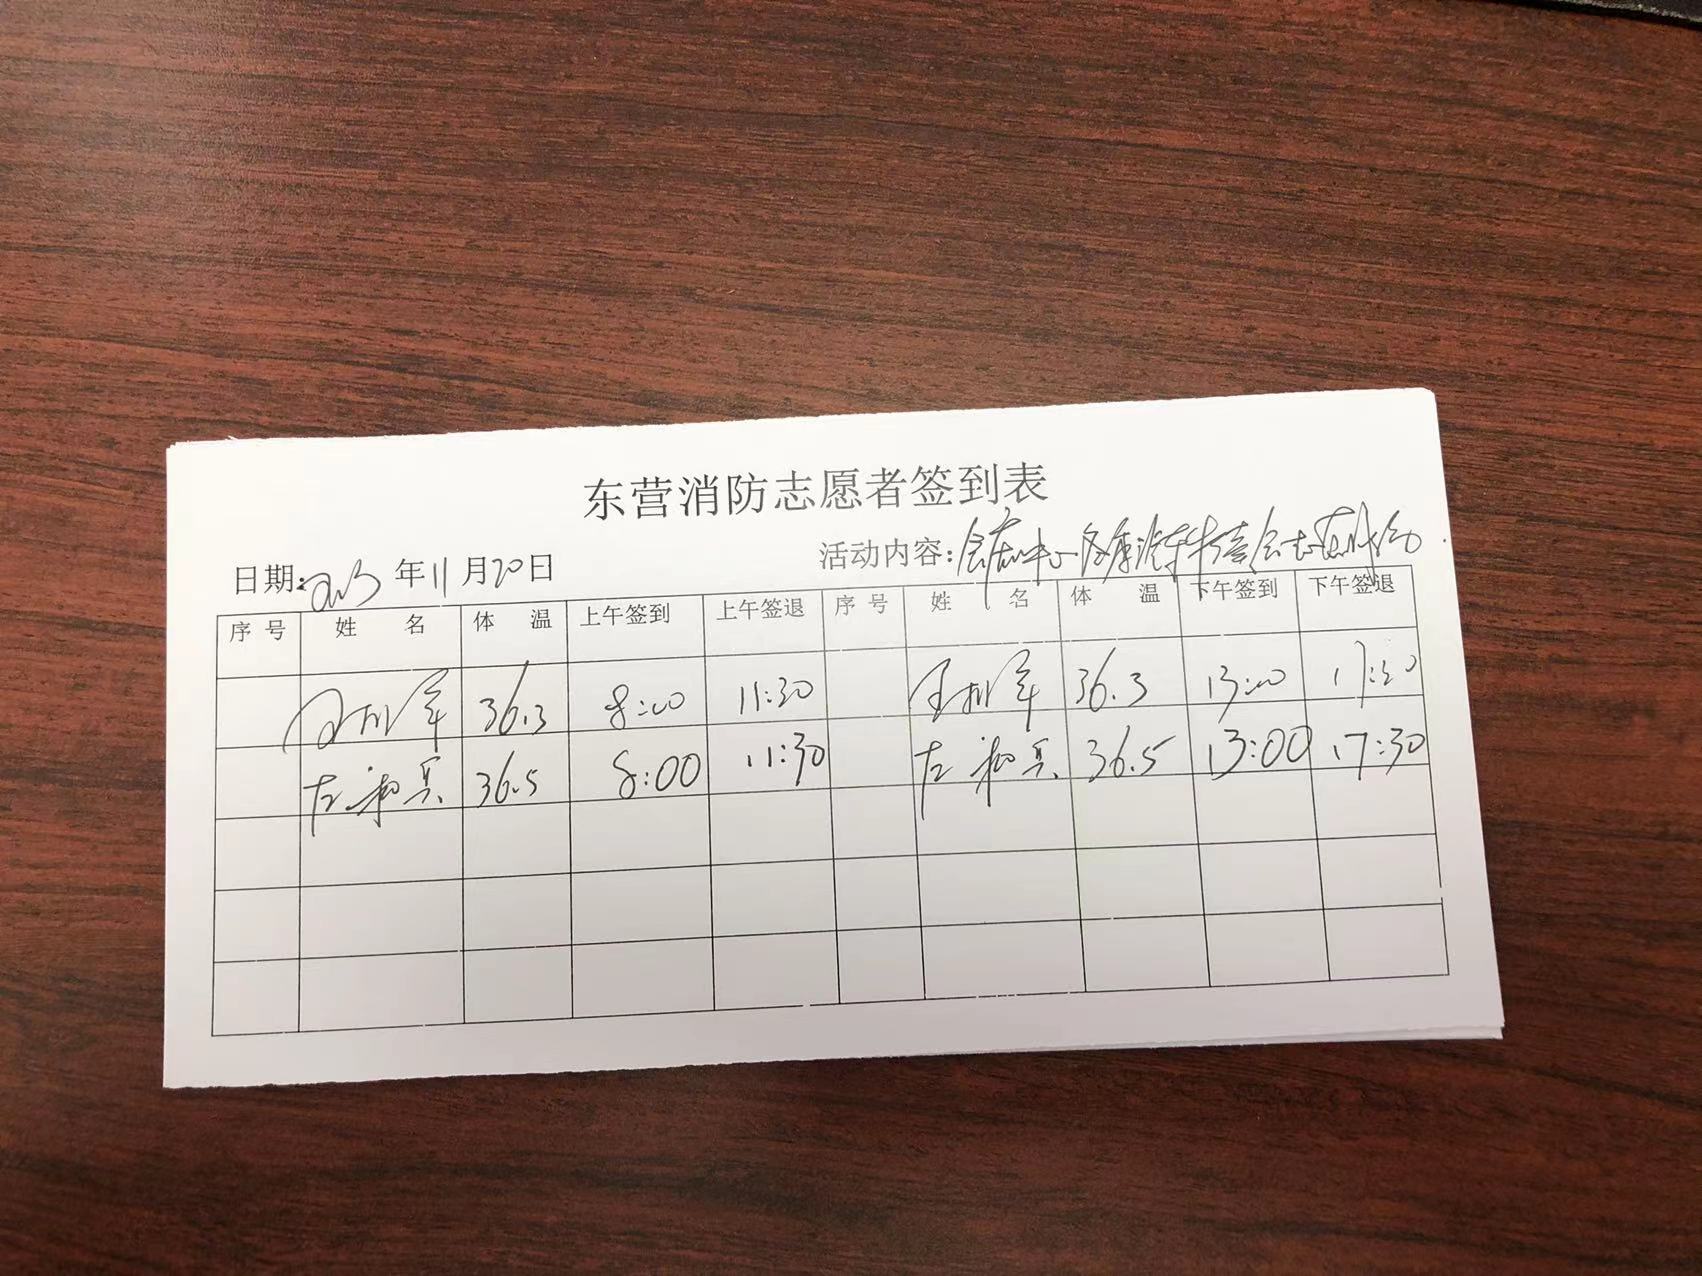 东营消防志愿者签到表
日期: 2023 年 11 月 20 日 活动内容:
序号 姓名 体温 上午签到 上午签退 序号 姓名 体温 下午签到 下午签退
36.3 8:00 11:30 36.3 13:00 17:30
左 36.5 8:00 11:30 左 36.5 13:00 17:30